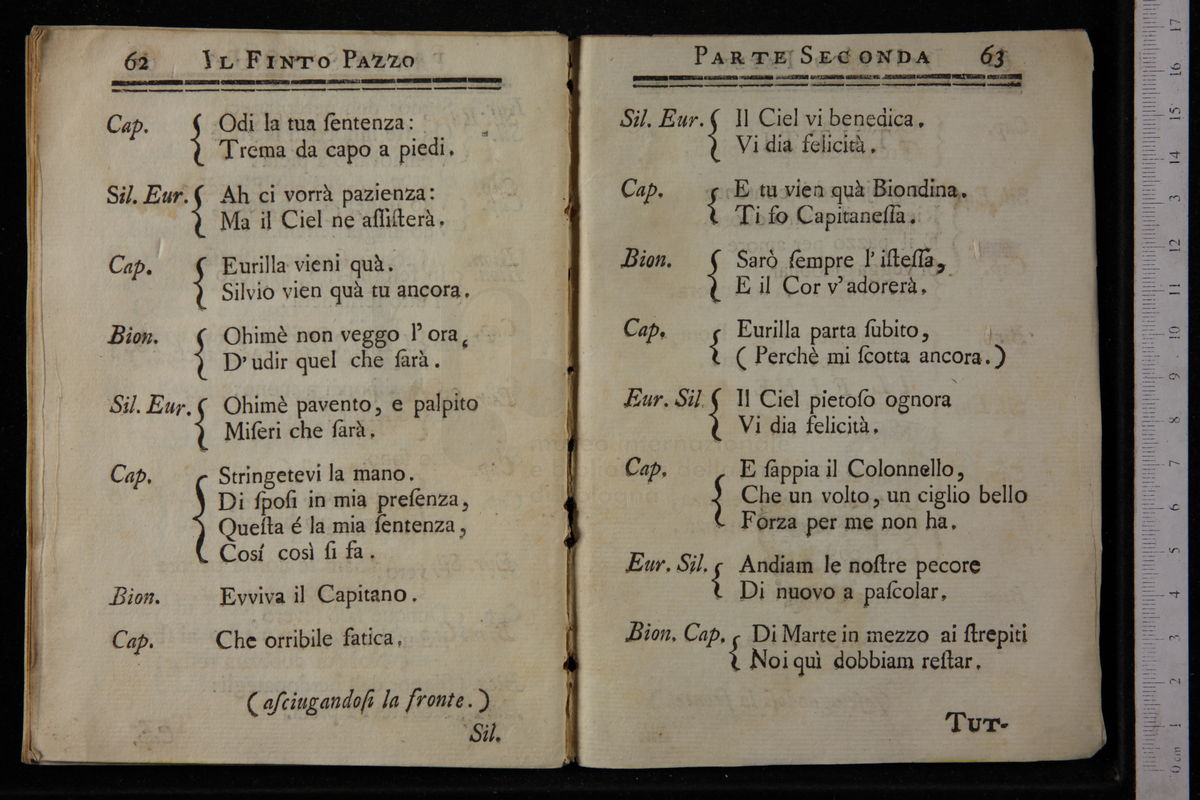 62 IL FINTO PAZZO
Cap. Odi la tua ſentenza:
Trema da capo a piedi.
Sil. Eur. Ah ci vorrà pazienza:
Ma il Ciel ne aſſiſterà.
Cap. Eurilla vieni quà.
Silvio vien quà tu ancora.
Bion. Ohimè non veggo l' ora,
D' udir quel che ſarà.
Sil. Eur. Ohimè pavento, e palpito
Miſeri che ſarà.
Cap. Stringetevi la mano.
Di ſpoſi in mia preſenza,
Queſta é la mia ſentenza,
Cosí così ſi fa.
Bion. Evviva il Capitano.
Cap. Che orribile fatica.
(aſciugandoſi la fronte.)
Sil.
PARTE SECONDA 63
Sil. Eur. Il Ciel vi benedica.
Vi dia felicità.
Cap. E tu vien quà Biondina.
Ti fo Capitaneſſa.
Bion. Sarò ſempre l' iſteſſa,
E il Cor v' adorerà.
Cap. Eurilla parta ſubito,
(Perchè mi ſcotta ancora.)
Eur. Sil. Il Ciel pietoſo ognora
Vi dia felicità.
Cap. E ſappia il Colonnello,
Che un volto, un ciglio bello
Forza per me non ha.
Eur. Sil. Andiam le noſtre pecore
Di nuovo a paſcolar.
Bion. Cap. Di Marte in mezzo ai ſtrepiti
Noi quì dobbiam reſtar.
TUT-
museo internazionale
e biblioteca della musica
di bologna
0 cm 1 2 3 4 5 6 7 8 9 10 11 12 13 14 15 16 17